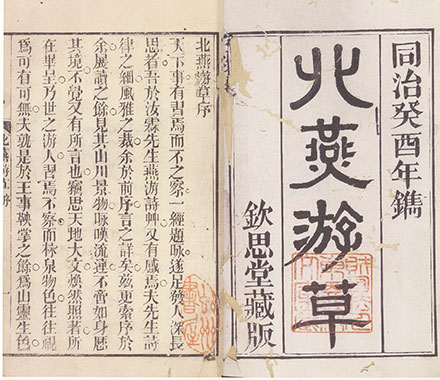 同治癸酉年鐫
北燕游草
欽思堂藏版
北燕游草序
天下事有習焉而不之察一經題咏遂足發人深長
思者吾於汝霖先生燕游詩艸又有感焉夫先生詩
律之細風雅之裁余於前序言之詳矣茲更索序於
余展讀之餘見其山川景物咏嘆流連不啻如身歷
其境不覺又有所言也竊思天地大文煥然照著所
在畢呈乃世之游人習焉不察而林泉物色往往視
爲可有可無夫孰是於王事鞅掌之餘爲山靈生色
北燕游草序